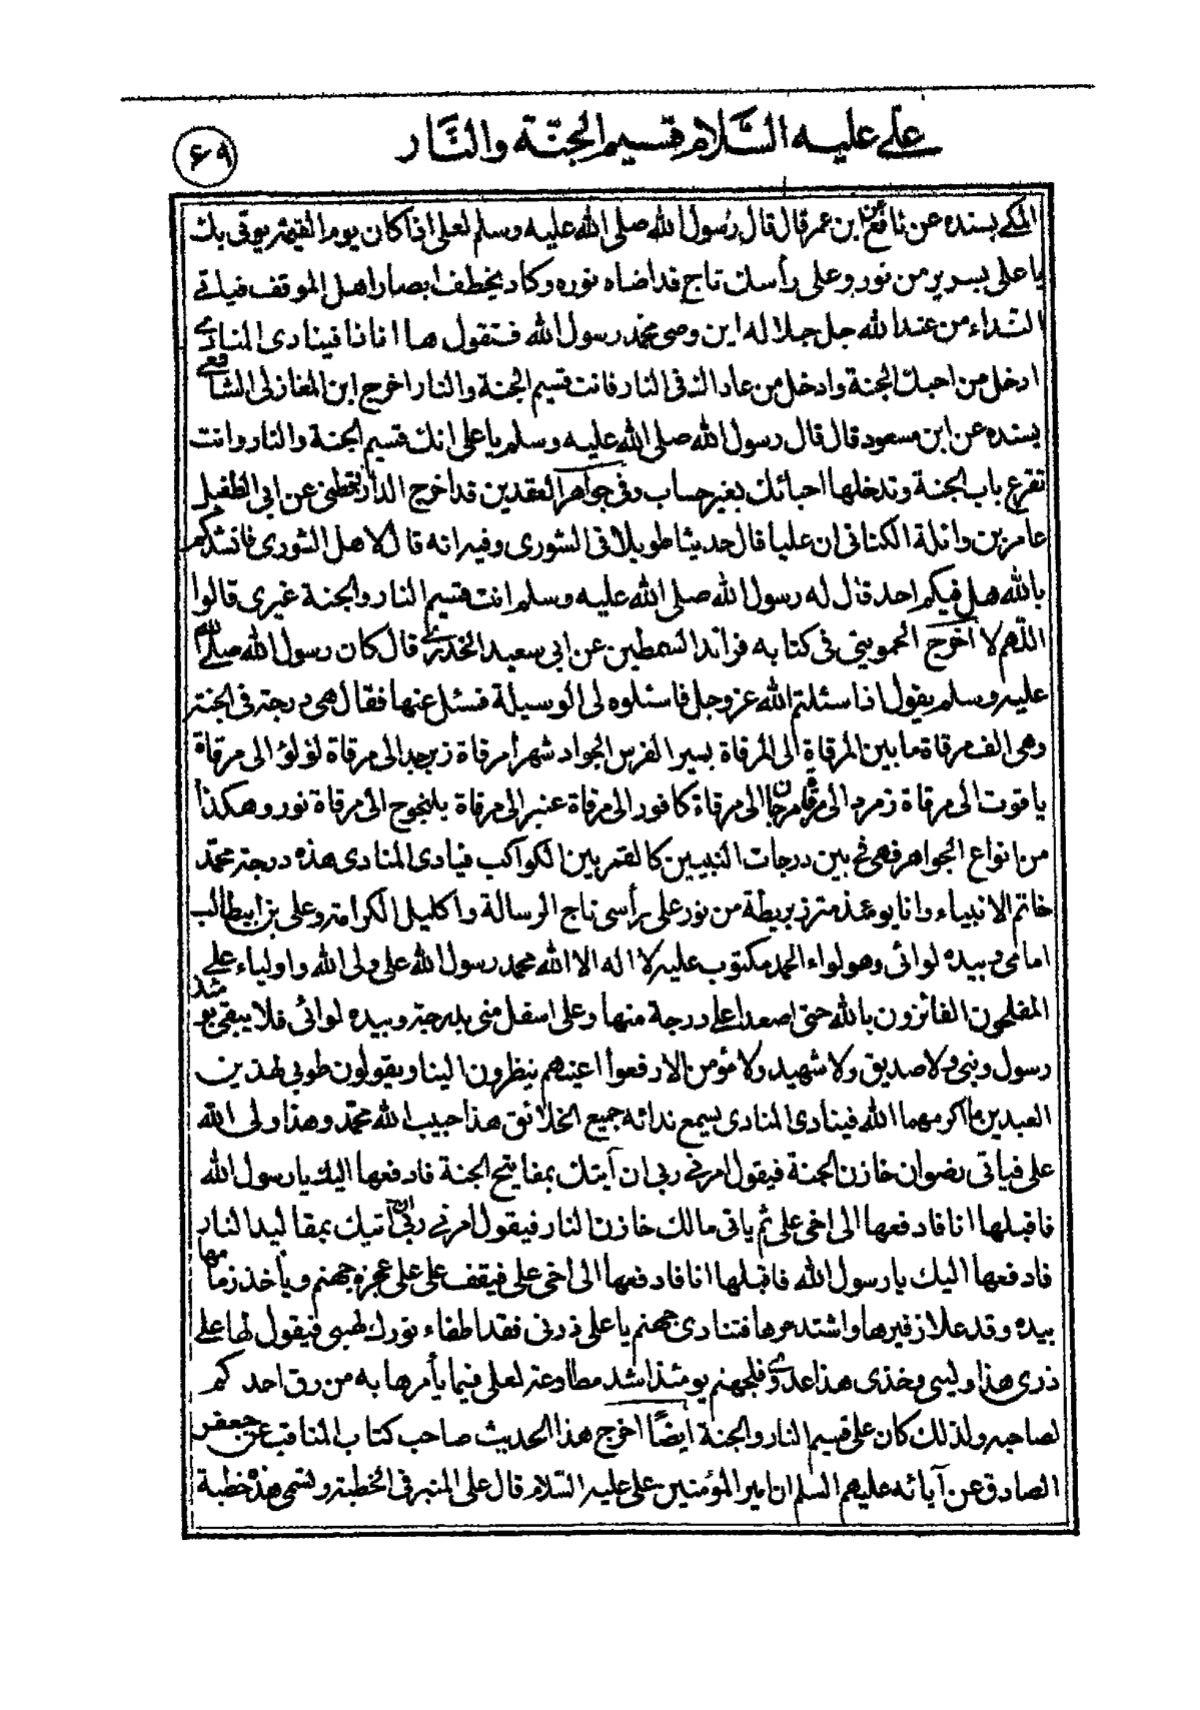 علي عليه السلام قسيم الجنّة والنّار
٦٩
المكي بسنده عن نافع عن ابن عمر قال قال رسول الله صلى الله عليه وسلم لعلى اذا كان يوم القيمة يوتى بك
يا على بسرير من نور وعلى رأسك تاج قد اضاء نوره وكاد يخطف ابصار اهل الموقف فياتى
النداء من عند الله جل جلاله اين وصى محمد رسول الله فتقول ها انا ذا فينادى المنادى
ادخل من احبك الجنة وادخل من عاداك فى النار فانت قسيم الجنة والنار اخرج ابن المغازلى الشافعى
بسنده عن ابن مسعود قال قال رسول الله صلى الله عليه وسلم يا على انك قسيم الجنة والنار وانت
تقرع باب الجنة وتدخلها احبائك بغير حساب وفى جواهر العقدين قد اخرج الدارقطنى عن ابى الطفيل
عامر بن واثلة الكنانى ان عليا قال حديثا طويلا فى الشورى وفيه انه قال لاهل الشورى فانشدكم
بالله هل فيكم احد قال له رسول الله صلى الله عليه وسلم انت قسيم النار والجنة غيرى قالوا
اللهم لا اخرج الحموينى فى كتابه فرائد السمطين عن ابى سعيد الخدرى قال كان رسول الله صلى الله
عليه وسلم يقول اذا سئلتم الله عز وجل فاسئلوه لى الوسيلة فسئل عنها فقال هى درجة فى الجنة
وهى الف مرقاة ما بين المرقاة الى المرقاة بسير الفرس الجواد شهرا مرقاة زبرجد الى مرقاة لؤلؤ الى مرقاة
ياقوت الى مرقاة زمرد الى مرقاة مرجان الى مرقاة كافور الى مرقاة عنبر الى مرقاة يلنجوج الى مرقاة نور وهكذا
من انواع الجواهر فهى ثم بين درجات النبيين كالقمر بين الكواكب فينادى المنادى هذه درجة محمّد
خاتم الانبياء وانا يومئذ متزر بريطة من نور على رأسى تاج الرسالة واكليل الكرامة وعلى بن ابيطالب
امامى وبيده لوائى وهو لواء الحمد مكتوب عليه لا اله الا الله محمد رسول الله على ولى الله واولياء على
المفلحون الفائزون بالله حتى اصعد اعلى درجة منها وعلى اسفل منى بدرجة وبيده لوائى فلا يبقى يومئذ
رسول ونبى ولا صديق ولا شهيد ولا مؤمن الا رفعوا اعينهم ينظرون الينا ويقولون طوبى لهذين
العبدين ما اكرمهما الله فينادى المنادى يسمع ندائه جميع الخلائق هذا حبيب الله محمّد وهذا ولى الله
على فياتى رضوان خازن الجنة فيقول امرنى ربى ان آتيك بمفاتيح الجنة فادفعها اليك يا رسول الله
فاقبلها انا فادفعها الى اخى على ثم ياتى مالك خازن النار فيقول امرنى ربى ان آتيك بمقاليد النار
فادفعها اليك يا رسول الله فاقبلها انا فادفعها الى اخى على فيقف على على عجزة جهنم وياخذ زمامها
بيده وقد علا زفيرها واشتد حرها فتنادى جهنم يا على ذرنى فقد اطفاء نورك لهبى فيقول لها على
ذرى هذا وليى وخذى هذا عدوى فلجهنم يومئذ اشد مطاوعة لعلى فيما يأمرها به من رق احدكم
لصاحبه ولذلك كان على قسيم النار والجنة ايضًا اخرج هذا الحديث صاحب كتاب المناقب عن جعفر
الصادق عن آبائه عليهم السلم ان امير المؤمنين على عليه السّلام قال على المنبر فى الخطبة وتسمى هذه خطبة